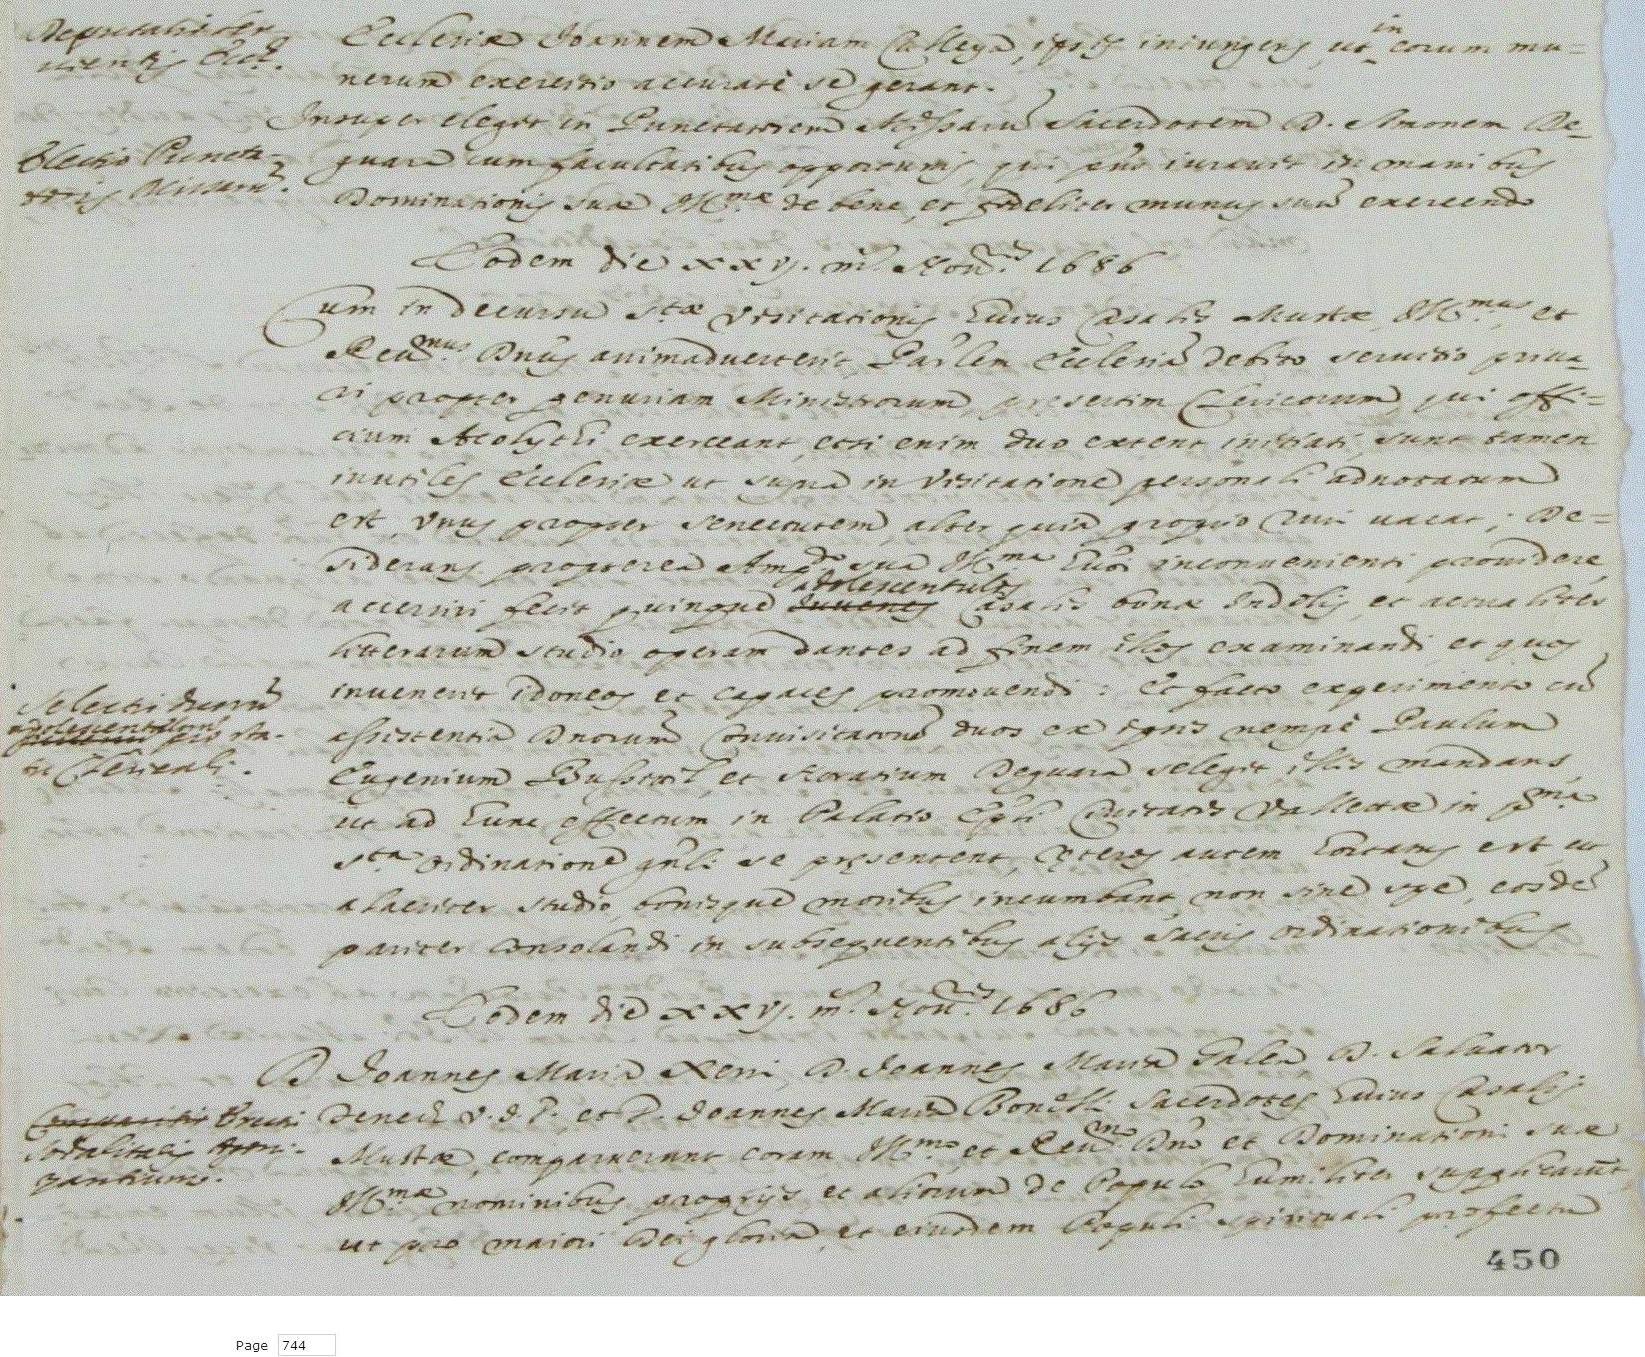 Deputatio ser
uientis Eccl.
Ecclesiæ Joannem Mariam Calleya, ipsis iniungens, ut in eorum mu=
nerum exercitio accuratè se gerant.
Electio Puncta=
toris Missarũ.
Insuper elegit in Punctatorem Missarũ Sacerdotem D. Simonem De=
guara cum facultatibus opportunis, qui iurauit in manibus
Dominationis suæ Ill.mæ de bene, et fideliter munus suũ exercendo
Eodem die xxvj. m.s Nou.ris 1686
Cum in decursu s.tæ Visitationis huius Casalis Mustæ, Ill.mus et
Reu.mus Dñus animaduerterit, Par'lem Ecclesiã debito seruitio priua=
ri propter penuriam Ministrorum, presertim Clericorum, qui offi=
cium Acolythi exerceant, etsi enim duo extent initiati, sunt tamen
inutiles Ecclesiæ ut supra in Visitatione personali adnotatum
est, vnus propter senectutem alter quia proprio Ruri uacat; De=
siderans propterea Amp.do sua Ill.ma huic inconuenienti prouidere
accersiri fecit quinque Iuuenes adolescentulos Casalis bonæ Indolis, et actualiter
litterarum studio operam dantes ad finem illos examinandi, et quos
inuenerit idoneos et capaces promouendi: Et facto experimento cũ
Selectio duorũ
adolescentulorũ pro sta=
tu Clericali.
assistentia Dnorum Conuisitatorũ duos ex ipsis nempè Paulum
Eugenium Busuttil, et Horatium Deguara selegit, illis mandans,
ut ad hunc effectum in Palatio Ep'li Ciuitatis Vallettæ in p.ma
s.ta ordinatione gñli se presentent, ceteros autem hortatus est, ut
alacriter studio, bonisque moribus incumbant, non sine spe, eosdẽ
pariter consolandi in subsequentibus alijs sacris ordinationibus
Eodem die xxvj. m.s Nou.ris 1686
D. Joannes Maria Xerri, D. Joannes Maria Galea D. Saluator
Sodalitatis Agoni=
zantium.
Fenech V. d. P. et D. Joannes Maria Bonelli Sacerdotes huius Casalis
Mustæ, comparuerunt coram Ill.mo et Reu.mo Dño et Dominationi suæ
Ill.mæ nominibus proprijs et aliorum de Populo humiliter supplicarũt,
ut pro maiori Dei gloria, et eiusdem Populi spirituali profectu
450
Page 744